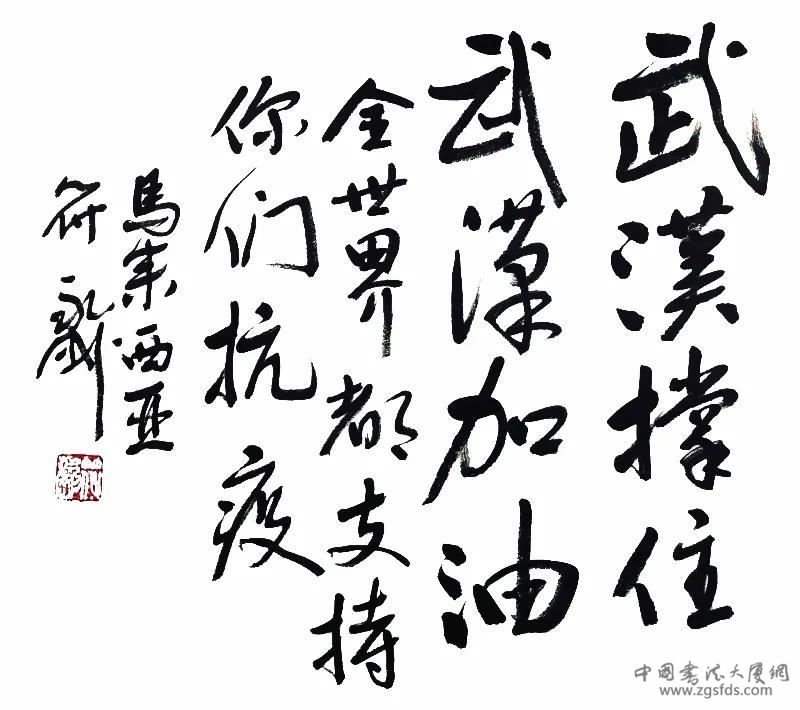 武漢撑住
武漢加油
全世界都支持
你们抗疫
馬来西亚
符
中國書法大厦網
www.zgsfds.com